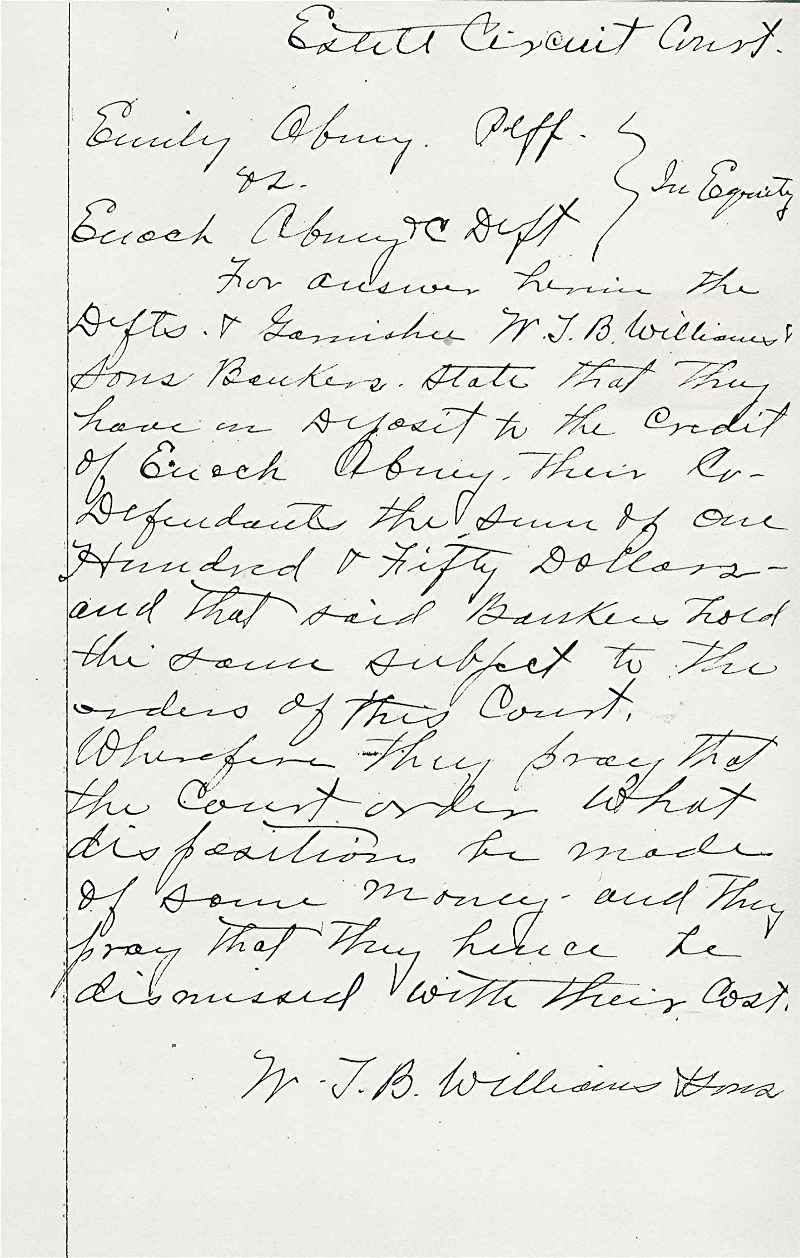 Estill Circuit Court.
Emily Abney. Plff.
vs.
In Equity
Enoch Abney &C Deft
For answer herein the
Defts. & Garnishee W. T. B. Williams &
Sons Bankers. State that They
have on Deposit to the Credit
of Enoch Abney. Their Co-
Defendants the sum of one
Hundred & Fifty Dollars -
and that said Bankers hold
the same subject to the
orders of this Court.
Wherefore They pray that
the Court order what
disposition be made
of same money - and They
pray that They hence be
dismissed with their Cost.
W. T. B. Williams & Sons